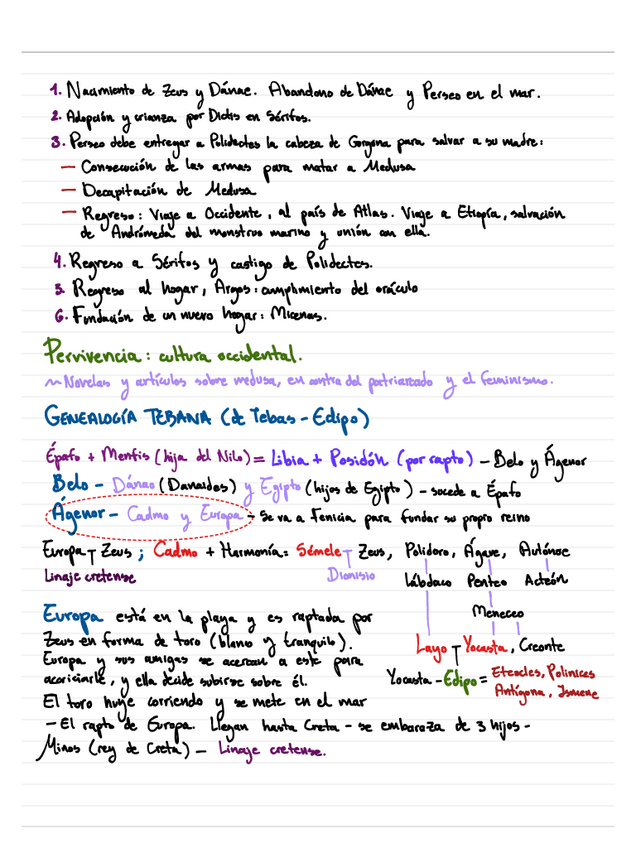 1. Nacimiento de Zeus y Dánae. Abandono de Dánae y Perseo en el mar.
2. Adopción y crianza por Dictis en Sérifos.
3. Perseo debe entregar a Polidectes la cabeza de Gorgona para salvar a su madre:
— Consecución de las armas para matar a Medusa
— Decapitación de Medusa
— Regreso: Viaje a Occidente, al país de Atlas. Viaje a Etiopía, salvación
de Andrómeda del monstruo marino y unión con ella.
4. Regreso a Sérifos y castigo de Polidectes.
5. Regreso al hogar, Argos: cumplimiento del oráculo
6. Fundación de un nuevo hogar: Micenas.
Pervivencia: cultura occidental.
~ Novelas y artículos sobre medusa, en contra del patriarcado y el feminismo.
GENEALOGÍA TEBANA (de Tebas - Edipo)
Épafo + Menfis (hija del Nilo) = Libia + Posidón (por rapto) - Belo y Ágenor
Belo - Dánao (Danaidas) y Egipto (hijos de Egipto) - sucede a Épafo
Ágenor - Cadmo y Europa - Se va a Fenicia para fundar su propio reino
Europa ┬ Zeus; Cadmo + Harmonía = Sémele ┬ Zeus, Polidoro, Ágave, Autónoe
Linaje cretense Dionisio Lábdaco Penteo Acteón
Meneceo
Layo ┬ Yocasta, Creonte
Yocasta - Edipo = Eteocles, Polinices
Antígona, Ismene
Europa está en la playa y es raptada por
Zeus en forma de toro (blanco y tranquilo).
Europa y sus amigas se acercan a este para
acariciarle, y ella decide subirse sobre él.
El toro huye corriendo y se mete en el mar
- El rapto de Europa. Llegan hasta Creta - se embaraza de 3 hijos -
Minos (rey de Creta) - Linaje cretense.